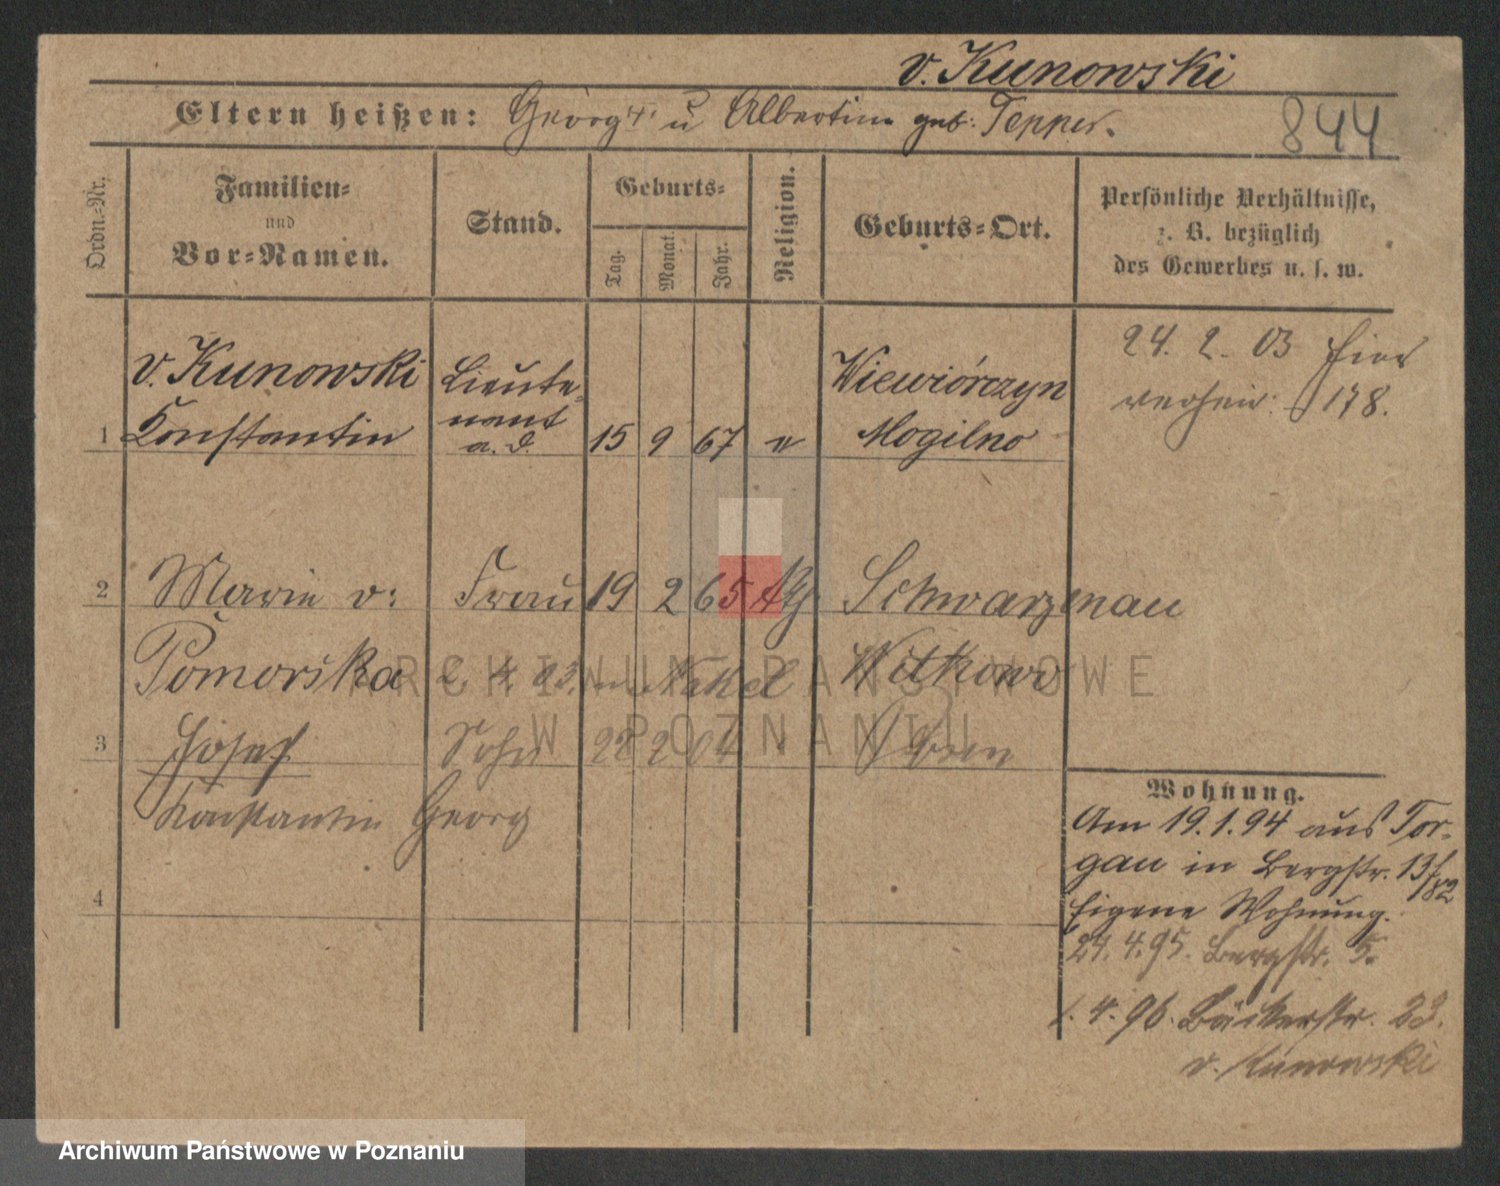 v. Kunowski
Eltern heißen: Georg † u Albertine geb. Tepper.
844
Ordn.-Nr.
Familien-
und
Vor-Namen.
Stand.
Geburts-
Tag.
Monat.
Jahr.
Religion.
Geburts-Ort.
Persönliche Verhältnisse,
z. B. bezüglich
des Gewerbes u. s. w.
24. 2. 03 hier
verheir: 178.
1
v. Kunowski
Konstantin
Lieute-
nant
a. D.
15 9 67 e
Wiewiórczyn
Mogilno
2 Marie v: Frau 19 2 65 kth Schwarzenau
Pomorska 2. 4. 03. Nakel Witkowo
3 Josef Sohn 22 2 04 Posen
Konstantin Georg
4
Wohnung.
Am 19.1.94 aus Tor-
gau in Bergstr. 13/
82
Eigene Wohnung.
24. 4. 95. Bergstr. 5.
1. 4. 96. Bäckerstr. 23.
v. Kunowski
ARCHIWUM PAŃSTWOWE
W POZNANIU
Archiwum Państwowe w Poznaniu